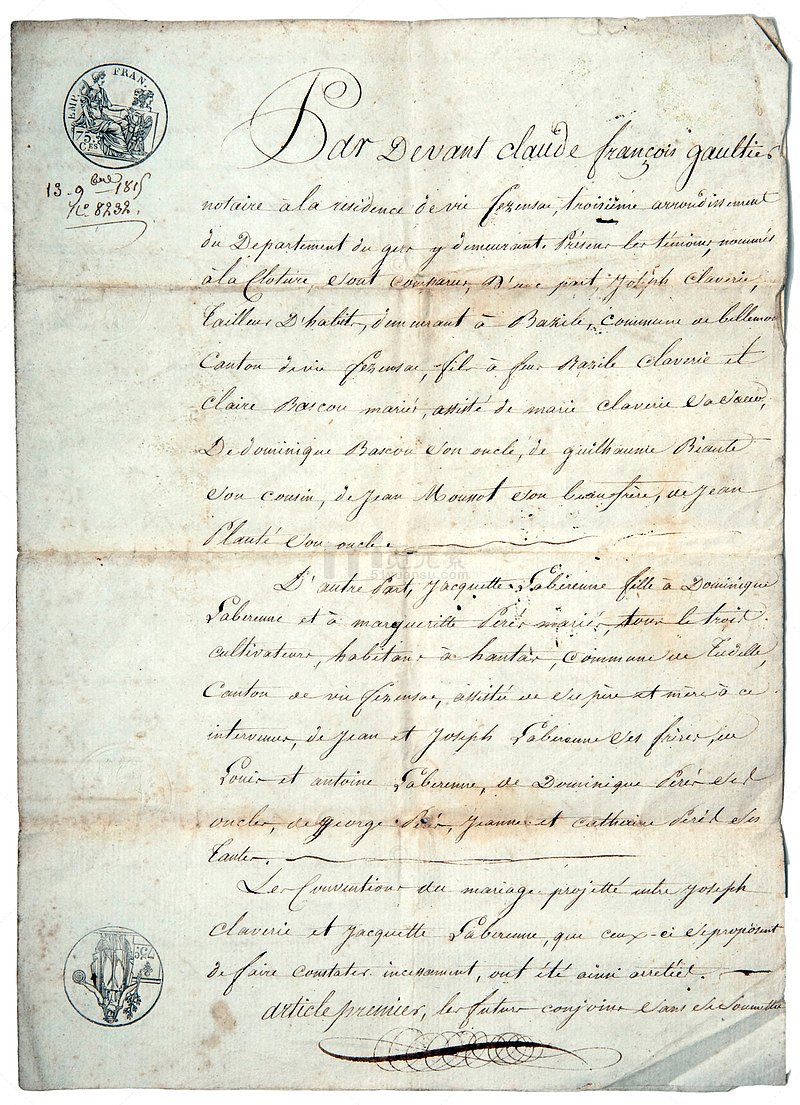 EMP. FRAN.
75
CES
13 9bre 1815
No. 8232.
Par Devant Claude françois gaultier
notaire à la residence de vic fezensac, troisième arrondissement
du Departement du gers y demeurant. Présens les témoins, nommés
à la Cloture, sont comparus, D'une part, Joseph Claverie,
Tailleur D'habits, demeurant à Bazile, commune de bellemon
Canton de vic fezensac, fils à feu Bazile Claverie et
Claire Bascou mariés, assisté de marie Claverie sa sœur,
De dominique Bascou son oncle, de guilhaume
son cousin, de Jean son beau frère, de Jean
Planté son oncle.
D'autre Part, Jacquette Laberenne fille à Dominique
Laberenne et à margueritte Perés mariés, tous le trois
cultivateurs, habitans à hantás, commune de Tudelle,
Canton de vic fezensac, assistée de ses père et mère à ce
intervenus, de Jean et Joseph Laberenne ses frères, de
Louis et antoine Laberenne, de Dominique Perés ses
oncles, de george Perés, Jeanne et catherine Perés ses
Tantes.
Les Conventions du mariage projetté entre Joseph
Claverie et Jacquette Laberenne, que ceux-ci se proposent
de faire constater incessament, ont été ainsi arretées.
article premier, les futurs conjoins sans se soumettre